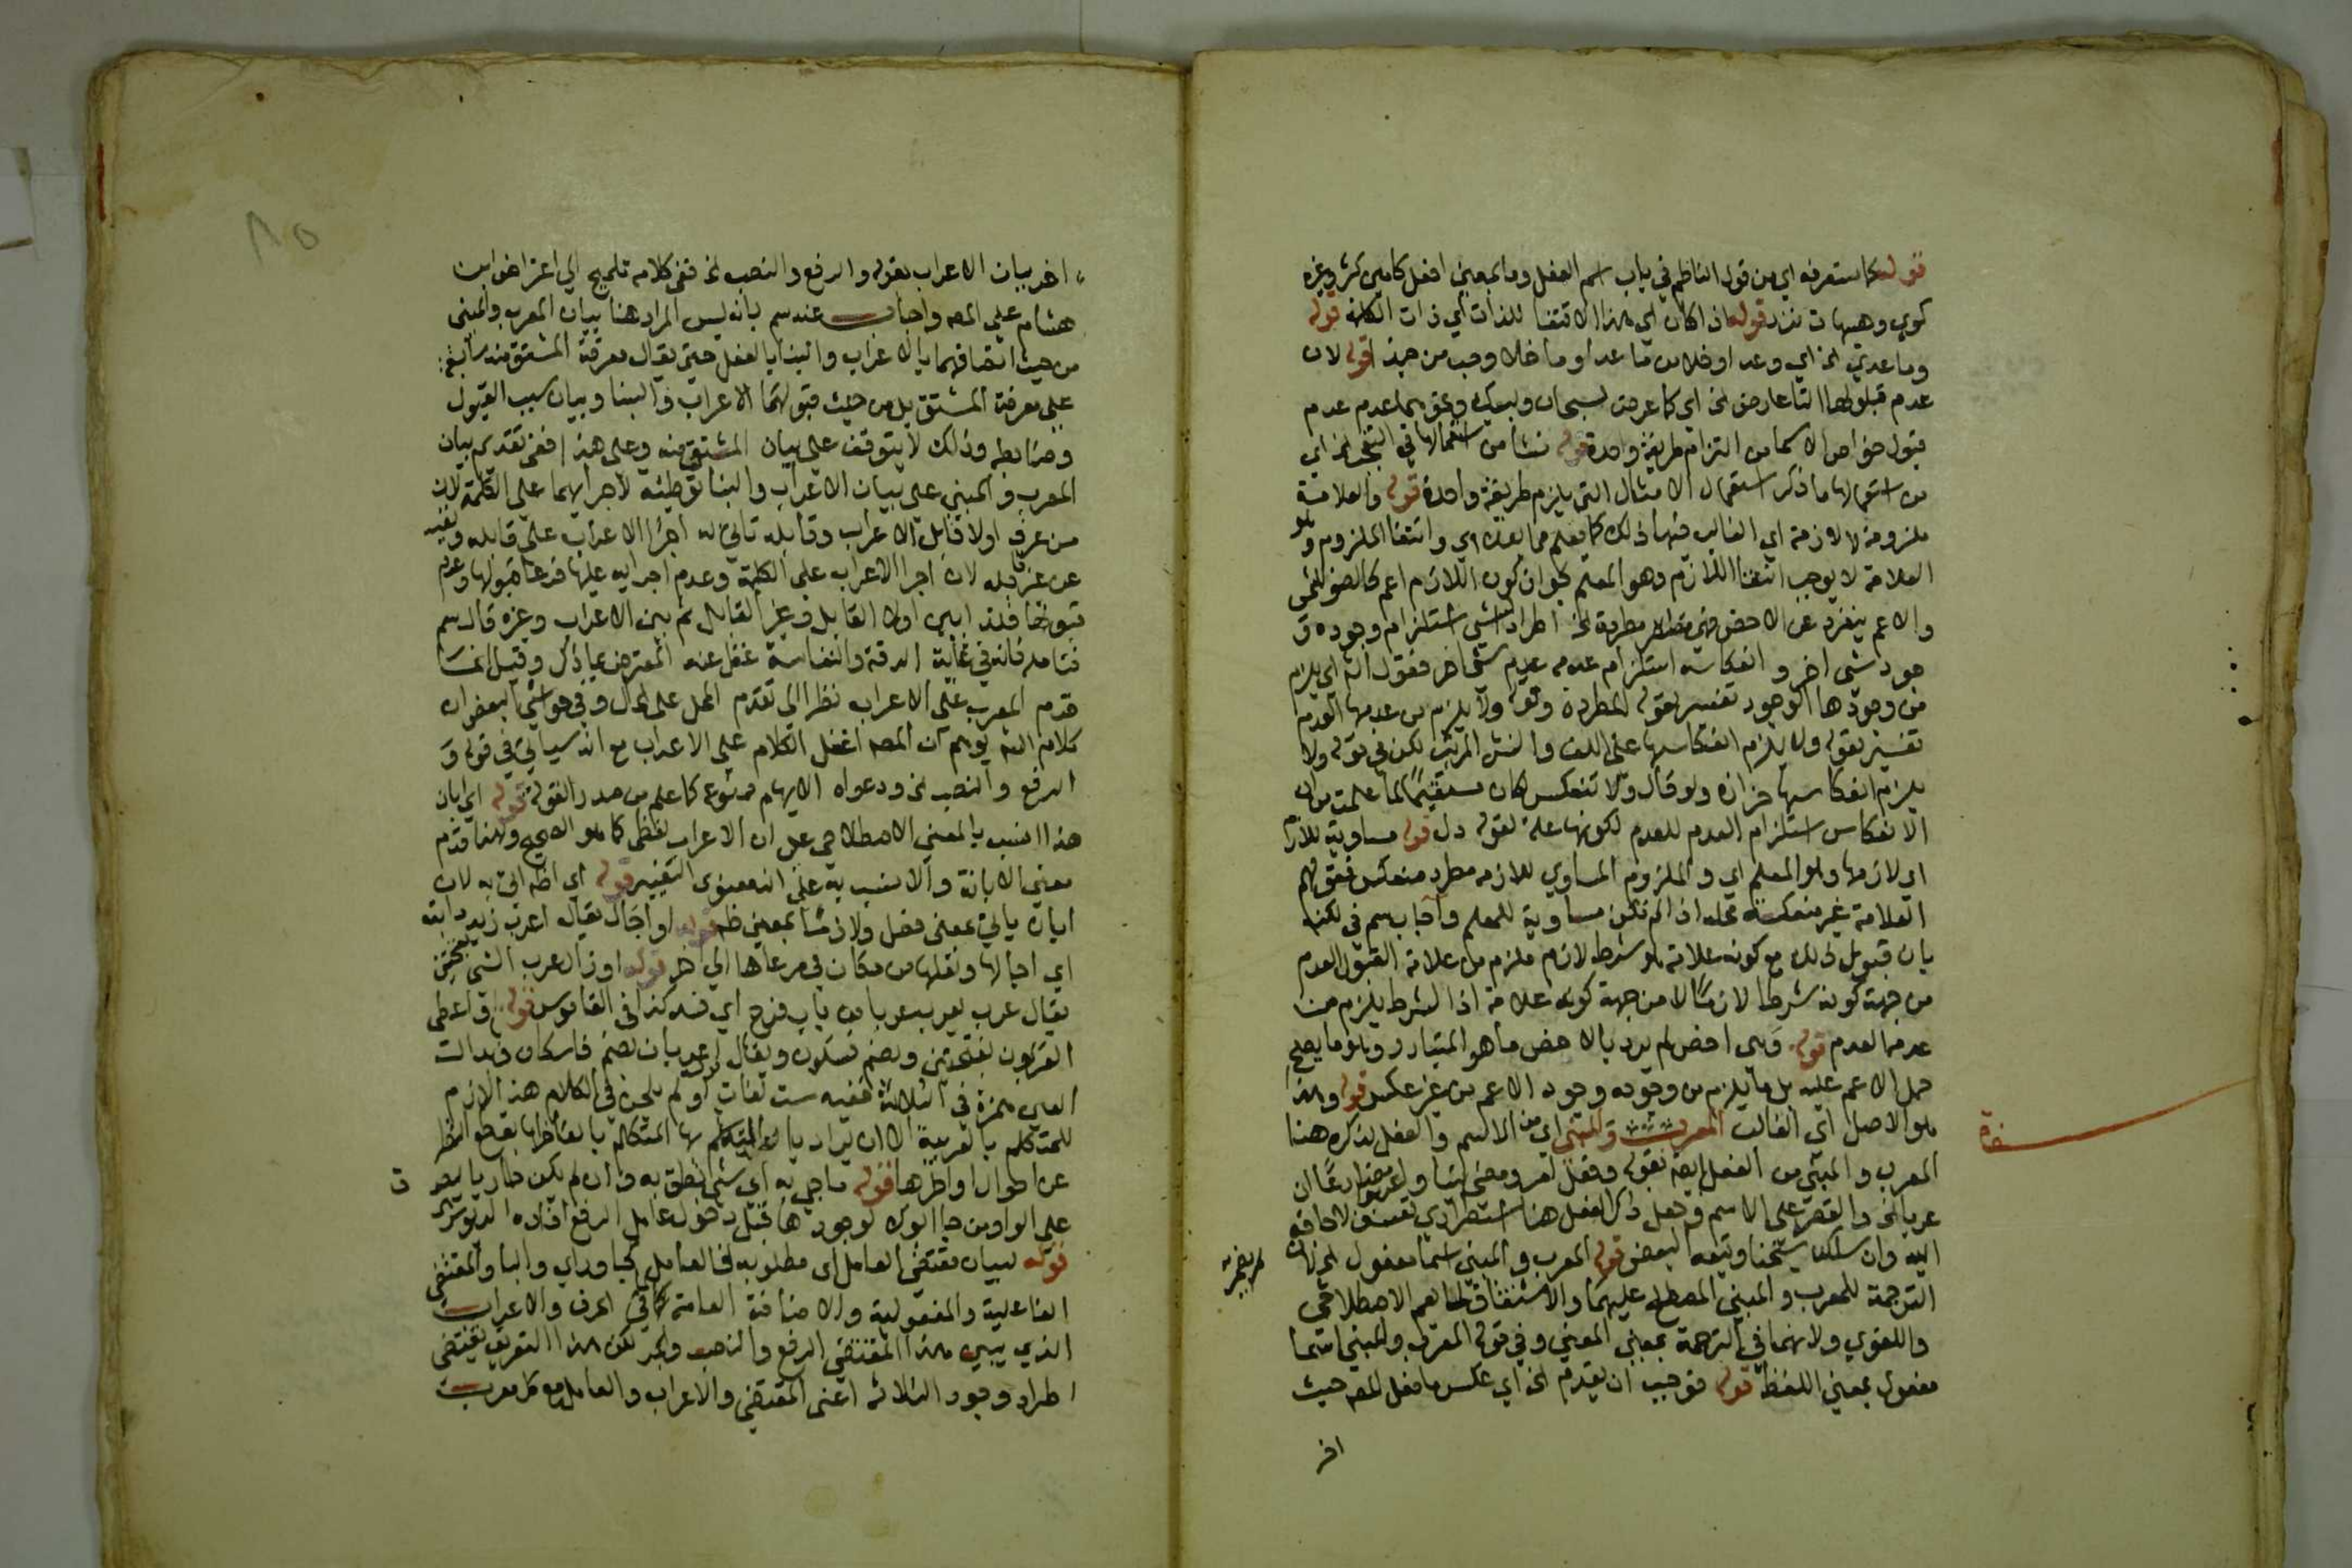 قوله كما ستعرفه اي من قول الناظم في باب اسم الفعل وما بمعني افعل كامين كثر وغيره
كوي وهيهات نزر قوله اذا كان اي هذا الانتفا للذات اي ذات الكلمة قوله
وما عدي الخ اي وعدا وخلا من ما عدا وما خلا وحب من حبذا قوله لان
عدم قبولها التا عارض الخ اي كما عرض لسبحان ولبيك ونحوهما عدم
قبول خواص الاسما من التزام طريقة واحدة قوله نشا من استعمالها في التعجب الخ اي
من استعمالها ما ذكر استعمال الامثال التي يلزم طريقة واحدة قوله والعلامة
ملزومة لا لازمة اي الغالب فيها ذلك كما يعلم مما بعد اي وانتفا الملزوم وهو
العلامة لا يوجب انتفا اللازم وهو المعلم لجواز كون اللازم اعم كالضو للشمس
والاعم ينفرد عن الاخص فهي مطردة الخ اطراد الشي استلزام وجوده و
جود شي اخر وانعكاسه استلزام عدمه عدم شي اخر فقول الشه اي يلزم
من وجودها الوجود تفسير لقوله المطردة وقوله ولا يلزم من عدمها العدم
تفسير لقوله ولا يلزم انعكاسها علي اللف والنشر المرتب لكن في قوله ولا
يلزم انعكاسها حزازة ولو قال ولا تنعكس لكان مستقيما لما علمت من ان
الانعكاس استلزام العدم للعدم لكونها علة لقوله دل قوله مساوية للازم
اي لازمها وهو المعلم اي والملزوم المساوي للازمه مطرد منعكس فقولهم
العلامة غير منعكسة محله اذا لم تكن مساوية للمعلم واجاب سم في نكته
بان قبول ذلك مع كونه علامة هو شرط لازم فلزم من علامة القبول العدم
من جهة كونه شرطا لازما لا من جهة كونه علامة اذ الشرط يلزم من
عدمه العدم قوله وهي اخص لم يرد بالاخص ما هو المتبادر وهو ما يصح
حمل الاعم عليه بل ما يلزم من وجوده وجود الاعم من غير عكس قوله وهذا
هو الاصل اي الغالب المعرب والمبني اي من الاسم والفعل لذكره هنا
المعرب والمبني من الفعل ايضا بقوله وفعل امر ومضي بنيا واعربوا مضارعا ان
عريا الخ والقصر علي الاسم وجعل ذكر الفعل هنا استطراديا تعسف لا حاجة
اليه وان سلكه شيخنا وتبعه البعض قوله المعرب والمبني اسما مفعول الخ لان
الترجمة للمعرب والمبني المصطلح عليهما والاشتقاق انما يعم الاصطلاحي
واللغوي ولانهما في الترجمة بمعني المعني وفي قوله المعرب والمبني اسما
مفعول بمعني اللفظ قوله فوجب ان يقدم الخ اي عكس ما فعل المصه حيث
اخر
اخر بيان الاعراب بقوله والرفع والنصب الخ ففي كلامه تلميح الي اعتراض ابن
هشام علي المصه واجاب عنه سم بانه ليس المراد هنا بيان المعرب والمبني
من حيث اتصافهما بالاعراب والبنا بالفعل حتي يقال معرفة المشتق منه سابقة
علي معرفة المشتق بل من حيث قبولهما الاعراب والبنا وبيان سبب القبول
وضابطه وذلك لا يتوقف علي بيان المشتق منه وعلي هذا ففي تقديم بيان
المعرب والمبني علي بيان الاعراب والبنا توطئة لاجرايهما علي الكلمة لان
من عرف اولا قابل الاعراب وقابله تاتي له اجرا الاعراب علي قابله ونفيه
عن غير قابله لان اجرا الاعراب علي الكلمة وعدم اجرايه عليها فرعا قبولها وعدم
قبولها فلذا بين اولا القابل وغير القابل ثم بين الاعراب وغيره قال سم
فتامله فانه في غاية الدقة والنفاسة غفل عنه المعترض بما ذكر وقيل انما
قدم المعرب علي الاعراب نظرا الي تقدم المحل علي الحال وفي حواشي البعض ان
كلام الشه يوهم ان المصه اغفل الكلام علي الاعراب مع انه سياتي في قوله و
الرفع والنصب الخ ودعواه الايهام ممنوع كما علم من صدر القولة قوله اي ابان
هذا انسب بالمعني الاصطلاحي علي ان الاعراب لفظي كما هو الصحيح ولهذا قدم
معني الابانة والانسب به علي انه معنوي التغيير قوله اي اظهر اتي به لان
ابان ياتي بمعني فصل ولازما بمعني ظهر قوله او اجال يقال اعرب زيد دابته
اي اجالها ونقلها من مكان في مرعاها الي اخر قوله او ازال عرب الشي بفتحتين
يقال عرب يعرب عربا من باب فرح اي فسد كذا في القاموس قوله او اعطي
العربون بفتحتين وبضم فسكون ويقال عربان بضم فاسكان وابدال
العين همزة في الثلاثة ففيه ست لغات او لم يلحن في الكلام هذا لازم
للمتكلم بالعربية الا ان يراد بالمتكلم بها المتكلم بالفاظها بقطع النظر
عن احوال اواخرها قوله ما جي به اي شي نطق به وان لم يكن طاريا ليصدق
علي الواو من جا ابوك لوجودها قبل دخول عامل الرفع افاده الدنوشري
قوله لبيان مقتضي العامل اي مطلوبه فالعامل كجا وراي والبا والمقتضي
الفاعلية والمفعولية والاضافة العامة لما في الحرف والاعراب
الذي يبين هذا المقتضي الرفع والنصب والجر لكن هذا التعريف يقتضي
اطراد وجود الثلاثة اعني المقتضي والاعراب والعامل مع كل معرب